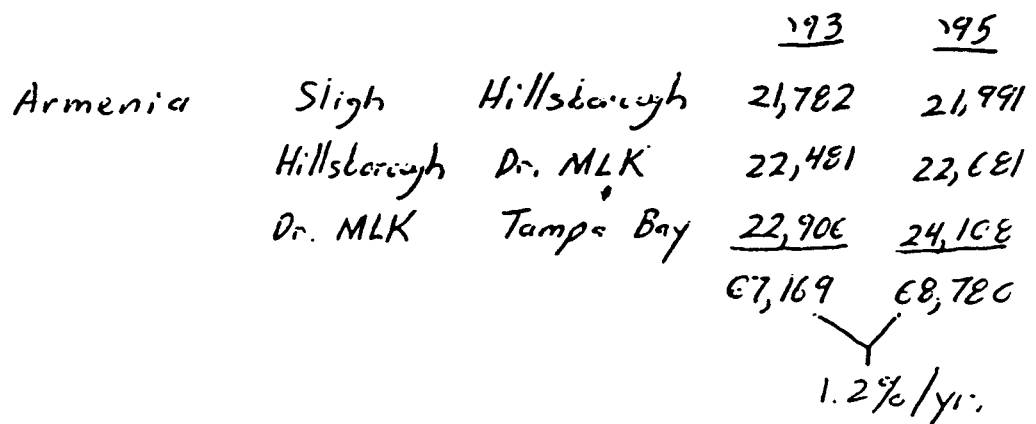 '93 '95
Armenia Sligh Hillsborough 21,782 21,991
Hillsborough Dr. MLK 22,481 22,681
Dr. MLK Tampa Bay 22,906 24,108
67,169 68,780
1.2%/yr.